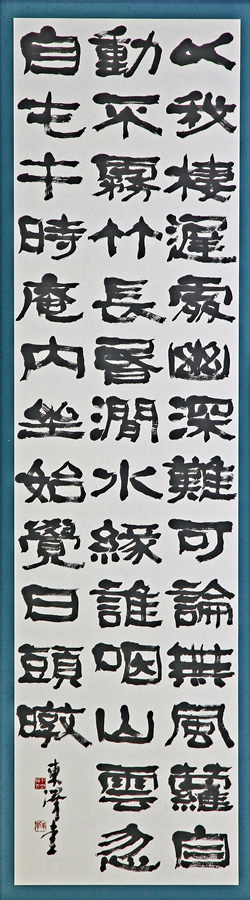 以我棲遲處幽深難可論無風蘿自
動不霧竹長昏澗水緣誰咽山雲忽
自屯午時庵内坐始覺日頭暾
東澤書